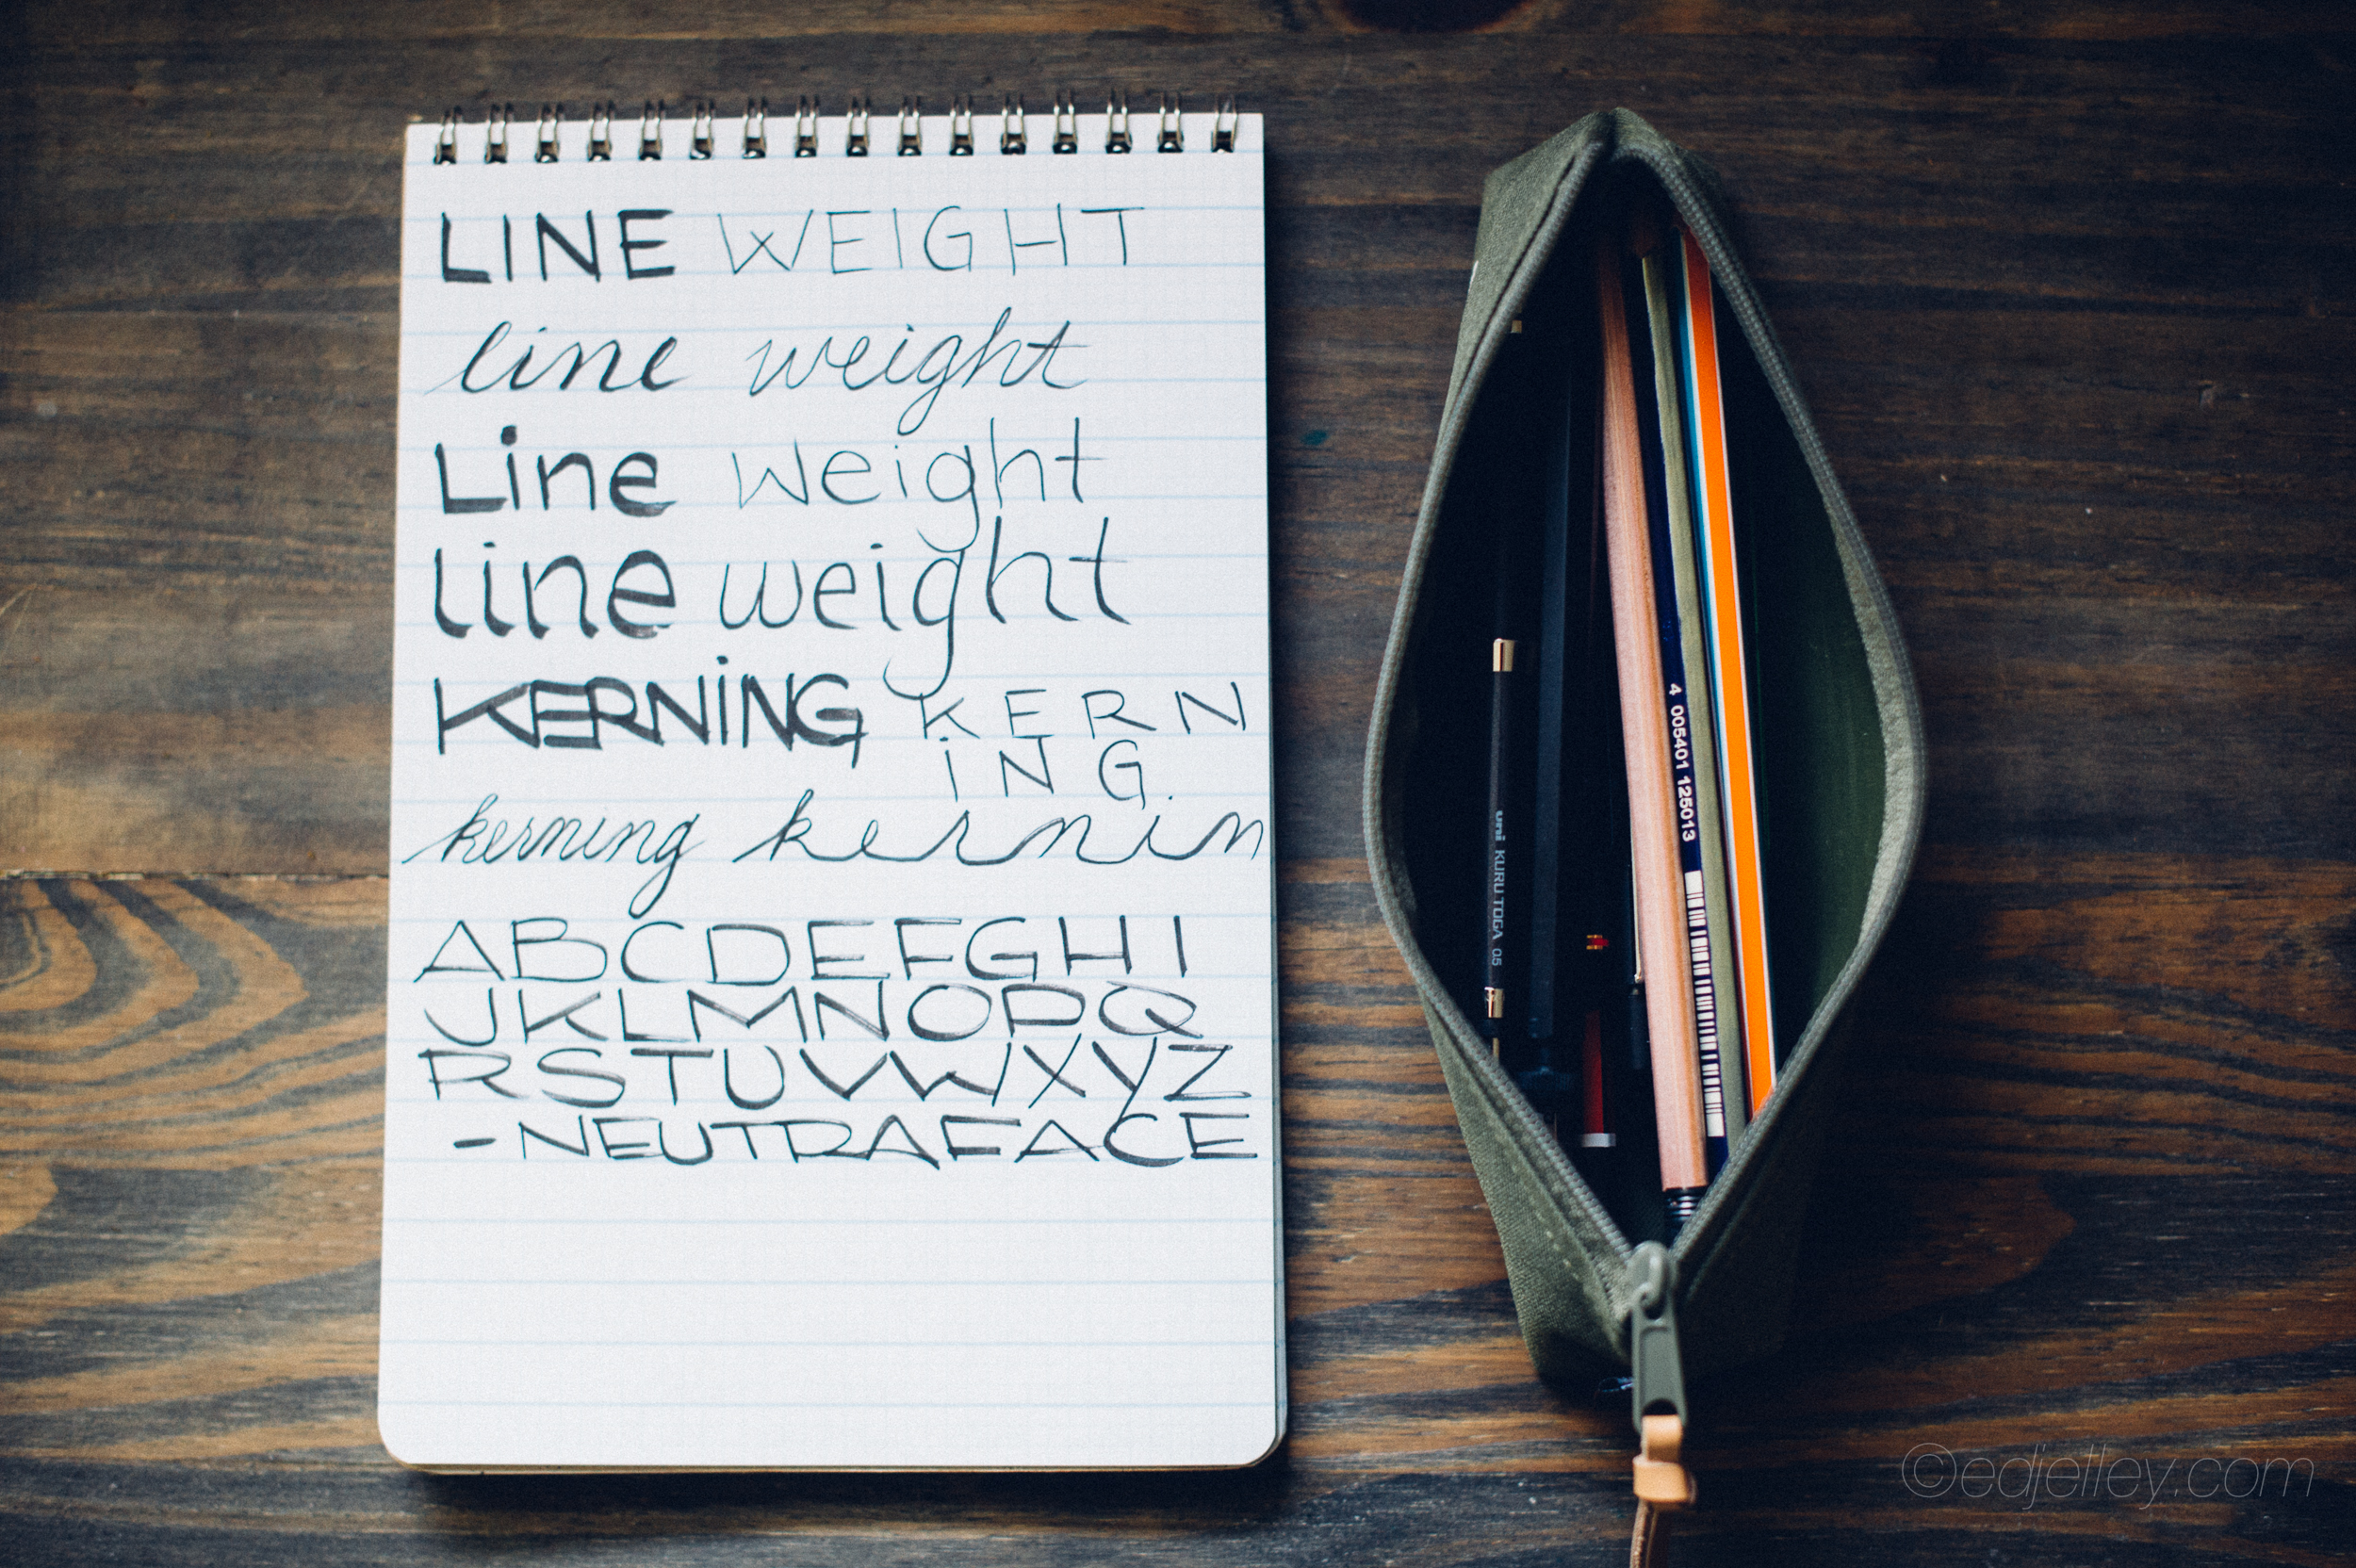 LINE WEIGHT
line weight
Line Weight
line weight
KERNiNG KERN
iNG.
kerning kernin
ABCDEFGHI
JKLMNOPQ
RSTUVWXYZ
-NEUTRAFACE
uni KURU TOGA 0.5
4 005401 125013
©edjelley.com